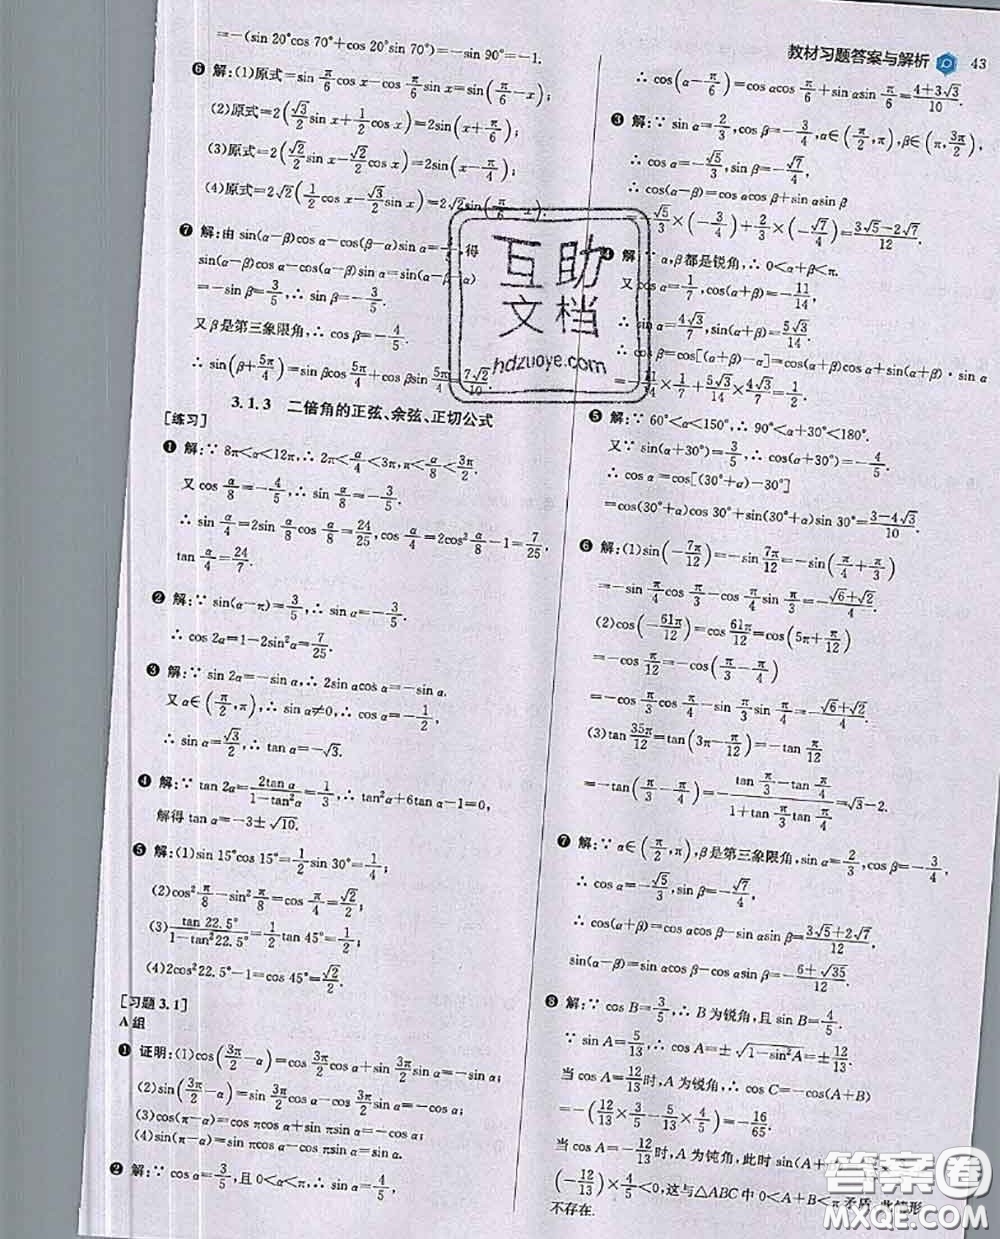 教材习题答案与解析 43
=-(sin 20°cos 70°+cos 20°sin 70°)=-sin 90°=-1.
❻ 解:(1)原式=sin π/6 cos x-cos π/6 sin x=sin(π/6-x);
(2)原式=2(√3/2 sin x+1/2 cos x)=2sin(x+π/6);
(3)原式=2(√2/2 sin x-√2/2 cos x)=2sin(x-π/4);
(4)原式=2√2(1/2 cos x-√3/2 sin x)=2√2 sin(π/6-x).
❼ 解:由 sin(α-β)cos α-cos(β-α)sin α= 得
sin(α-β)cos α-cos(α-β)sin α=sin(α-β-α)
=-sin β=3/5,∴ sin β=-3/5.
又 β 是第三象限角,∴ cos β=-4/5.
∴ sin(β+5π/4)=sin βcos 5π/4+cos βsin 5π/4=7√2/10.
3.1.3 二倍角的正弦、余弦、正切公式
[练习]
❶ 解:∵ 8π<α<12π,∴ 2π<α/4<3π,π<α/8<3π/2.
又 cos α/8=-4/5,∴ sin α/8=-3/5.
∴ sin α/4=2sin α/8 cos α/8=24/25,cos α/4=2cos² α/8-1=7/25,
tan α/4=24/7.
❷ 解:∵ sin(α-π)=3/5,∴ sin α=-3/5.
∴ cos 2α=1-2sin²α=7/25.
❸ 解:∵ sin 2α=-sin α,∴ 2sin αcos α=-sin α.
又 α∈(π/2,π),∴ sin α≠0,∴ cos α=-1/2,
∴ sin α=√3/2,∴ tan α=-√3.
❹ 解:∵ tan 2α=2tan α/(1-tan²α)=1/3,∴ tan²α+6tan α-1=0,
解得 tan α=-3±√10.
❺ 解:(1)sin 15°cos 15°=1/2 sin 30°=1/4;
(2)cos² π/8-sin² π/8=cos π/4=√2/2;
(3)tan 22.5°/(1-tan²22.5°)=1/2 tan 45°=1/2;
(4)2cos²22.5°-1=cos 45°=√2/2.
[习题 3.1]
A 组
❶ 证明:(1)cos(3π/2-α)=cos 3π/2 cos α+sin 3π/2 sin α=-sin α;
(2)sin(3π/2-α)=sin 3π/2 cos α-cos 3π/2 sin α=-cos α;
(3)cos(π-α)=cos πcos α+sin πsin α=-cos α;
(4)sin(π-α)=sin πcos α-cos πsin α=sin α.
❷ 解:∵ cos α=3/5,且 0<α<π,∴ sin α=4/5,
∴ cos(α-π/6)=cos αcos π/6+sin αsin π/6=(4+3√3)/10.
❸ 解:∵ sin α=2/3,cos β=-3/4,α∈(π/2,π),β∈(π,3π/2),
∴ cos α=-√5/3,sin β=-√7/4,
∴ cos(α-β)=cos αcos β+sin αsin β
√5/3×(-3/4)+2/3×(-√7/4)=(3√5-2√7)/12.
❹ 解 ∵ α,β都是锐角,∴ 0<α+β<π.
又 cos α=1/7,cos(α+β)=-11/14,
∴ sin α=4√3/7,sin(α+β)=5√3/14.
∴ cos β=cos[(α+β)-α]=cos(α+β)cos α+sin(α+β)·sin α
=-11/14×1/7+5√3/14×4√3/7=1/2.
❺ 解:∵ 60°<α<150°,∴ 90°<α+30°<180°.
又∵ sin(α+30°)=3/5,∴ cos(α+30°)=-4/5.
∴ cos α=cos[(30°+α)-30°]
=cos(30°+α)cos 30°+sin(30°+α)sin 30°=(3-4√3)/10.
❻ 解:(1)sin(-7π/12)=-sin 7π/12=-sin(π/4+π/3)
=-sin π/4 cos π/3-cos π/4 sin π/3=-(√6+√2)/4.
(2)cos(-61π/12)=cos 61π/12=cos(5π+π/12)
=-cos π/12=-cos(π/3-π/4)
=-cos π/3 cos π/4-sin π/3 sin π/4=-(√6+√2)/4.
(3)tan 35π/12=tan(3π-π/12)=-tan π/12
=-tan(π/3-π/4)=-(tan π/3-tan π/4)/(1+tan π/3 tan π/4)=√3-2.
❼ 解:∵ α∈(π/2,π),β是第三象限角,sin α=2/3,cos β=-3/4,
∴ cos α=-√5/3,sin β=-√7/4,
∴ cos(α+β)=cos αcos β-sin αsin β=(3√5+2√7)/12,
sin(α-β)=sin αcos β-cos αsin β=-(6+√35)/12.
❽ 解:∵ cos B=3/5,∴ B 为锐角,且 sin B=4/5.
∵ sin A=5/13,∴ cos A=±√(1-sin²A)=±12/13.
当 cos A=12/13时,A 为锐角,∴ cos C=-cos(A+B)
=-(12/13×3/5-5/13×4/5)=-16/65.
当 cos A=-12/13时,A 为钝角,此时 sin(A+
(-12/13)×4/5<0,这与△ABC 中 0<A+B<π 矛盾,此情形
不存在.
互助
文档
hdzuoye.com
答案圈
MXQE.COM